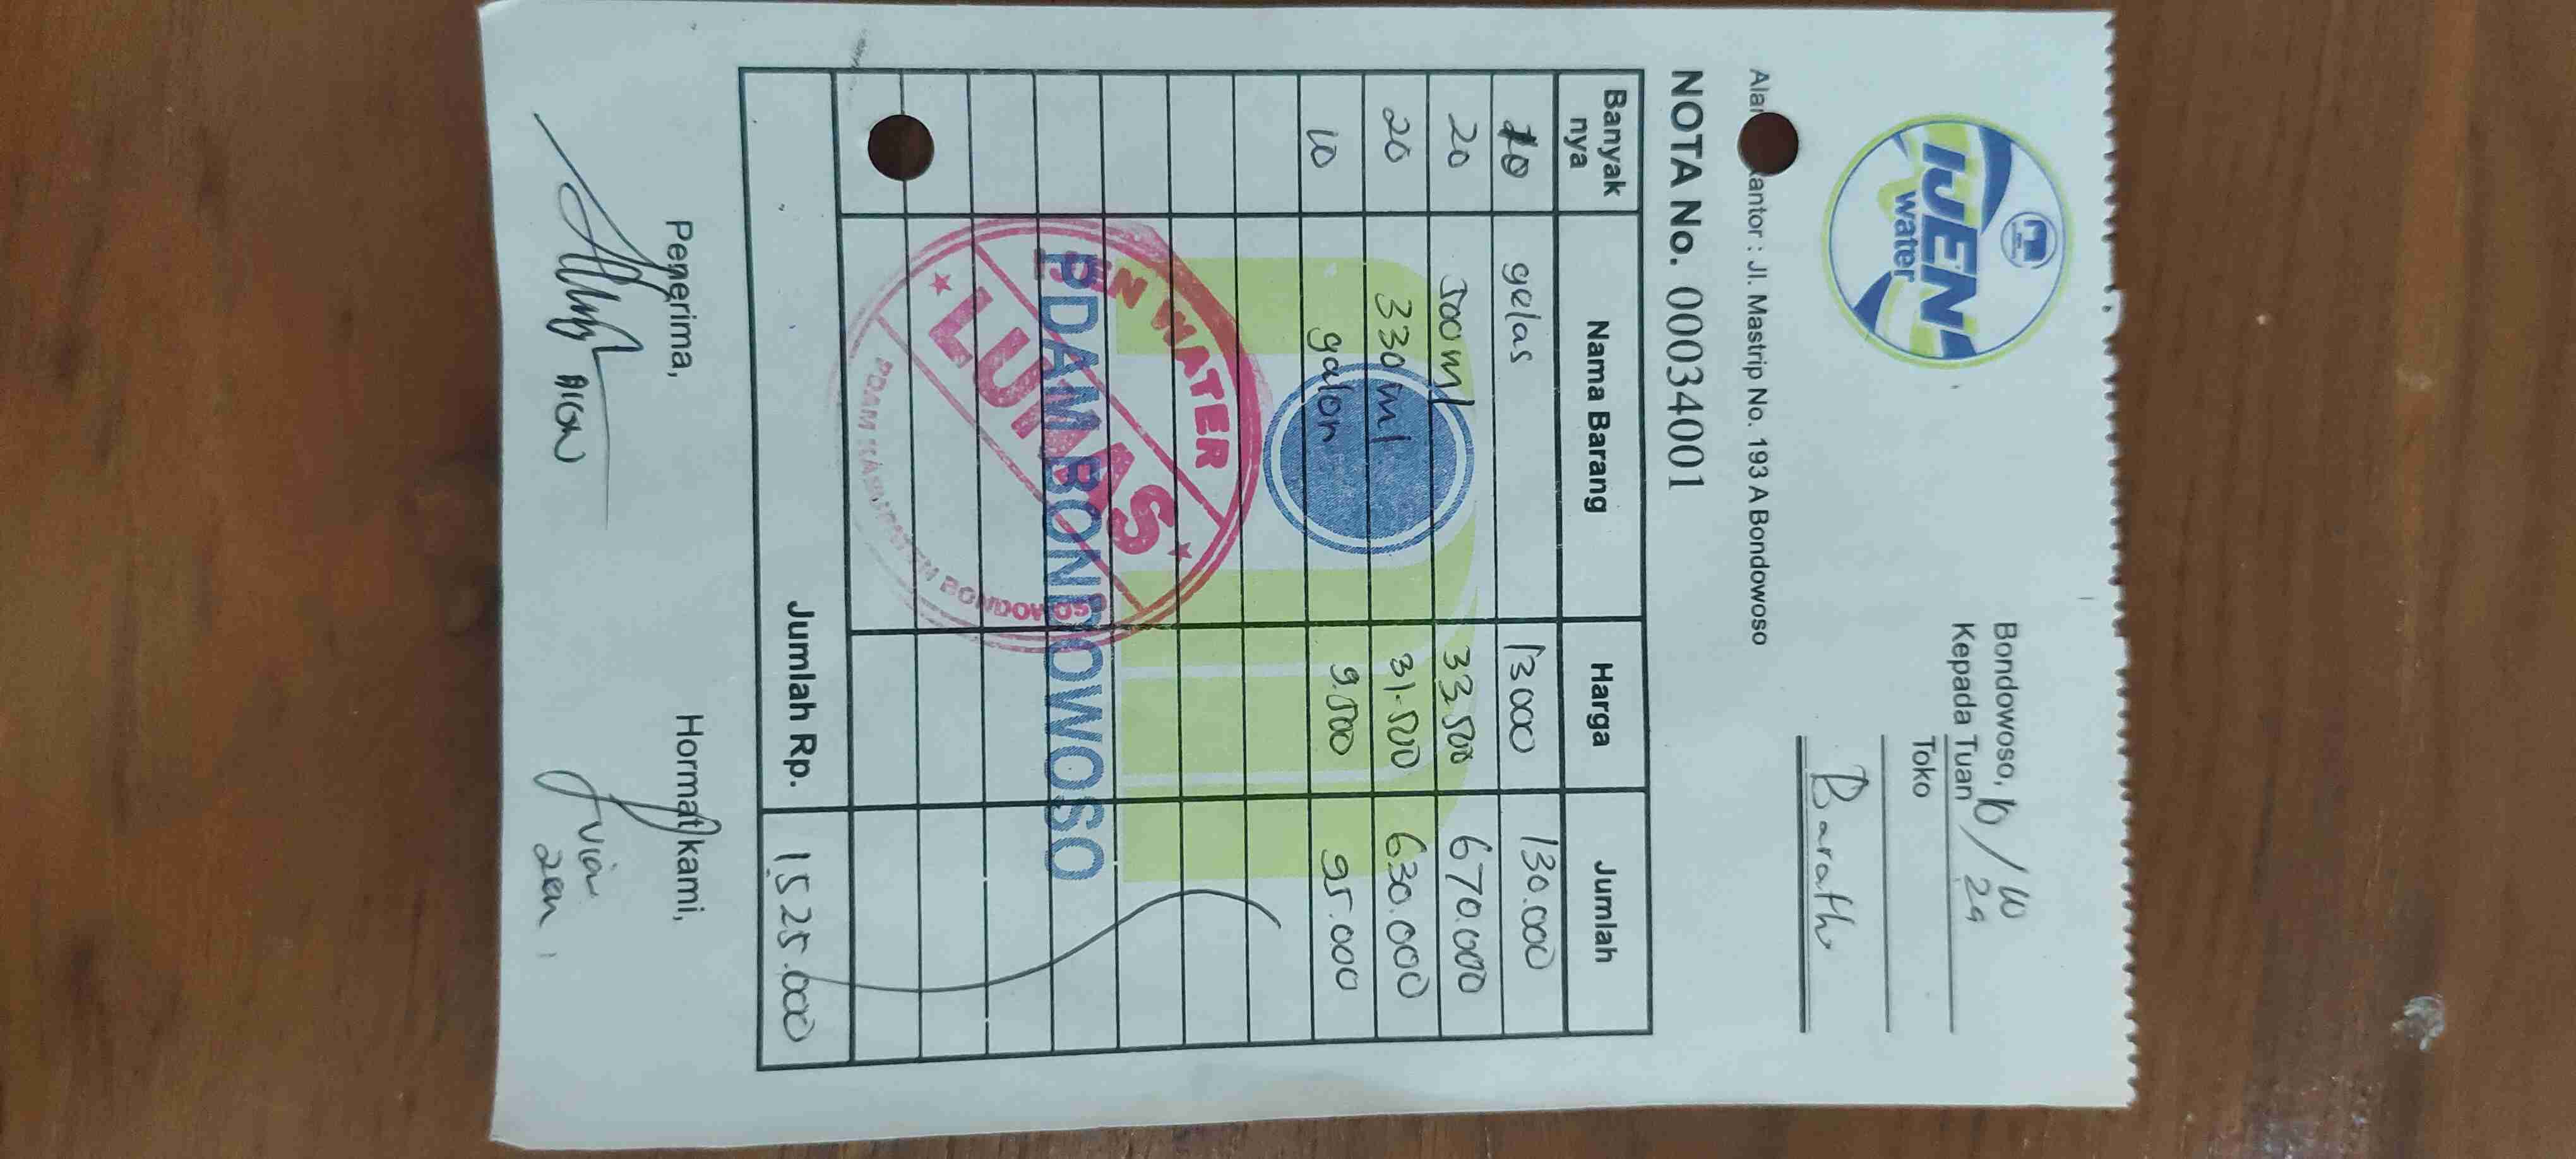 IJEN
water
Bondowoso, 10/10 24
Kepada Tuan
Toko
Barath
Ala antor : Jl. Mastrip No. 193 A Bondowoso
NOTA No. 00034001
Banyak nya Nama Barang Harga Jumlah
10 gelas 13000 130.000
20 500 ml 33.500 670.000
20 330 ml 31.500 630.000
10 galon 9.500 95.000
IJEN WATER
LUNAS
PDAM KABUPATEN BONDOWOSO
PDAM BONDOWOSO
Jumlah Rp. 1.525.000
Penerima, Hormat kami,